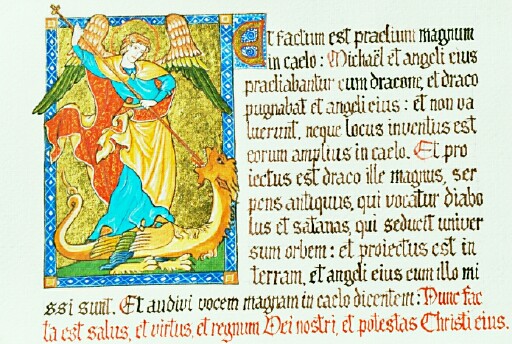 Et factum est praelium magnum
in caelo : Michaël et angeli eius
praeliabantur cum dracone, et draco
pugnabat et angeli eius : et non va
luerunt, neque locus inventus est
eorum amplius in caelo. Et pro
iectus est draco ille magnus, ser
pens antiquus, qui vocatur diabo
lus et satanas, qui seducit univer
sum orbem : et proiectus est in
terram, et angeli eius cum illo mi
ssi sunt. Et audivi vocem magnam in caelo dicentem : Nunc fac
ta est salus, et virtus, et regnum Dei nostri, et potestas Christi eius.